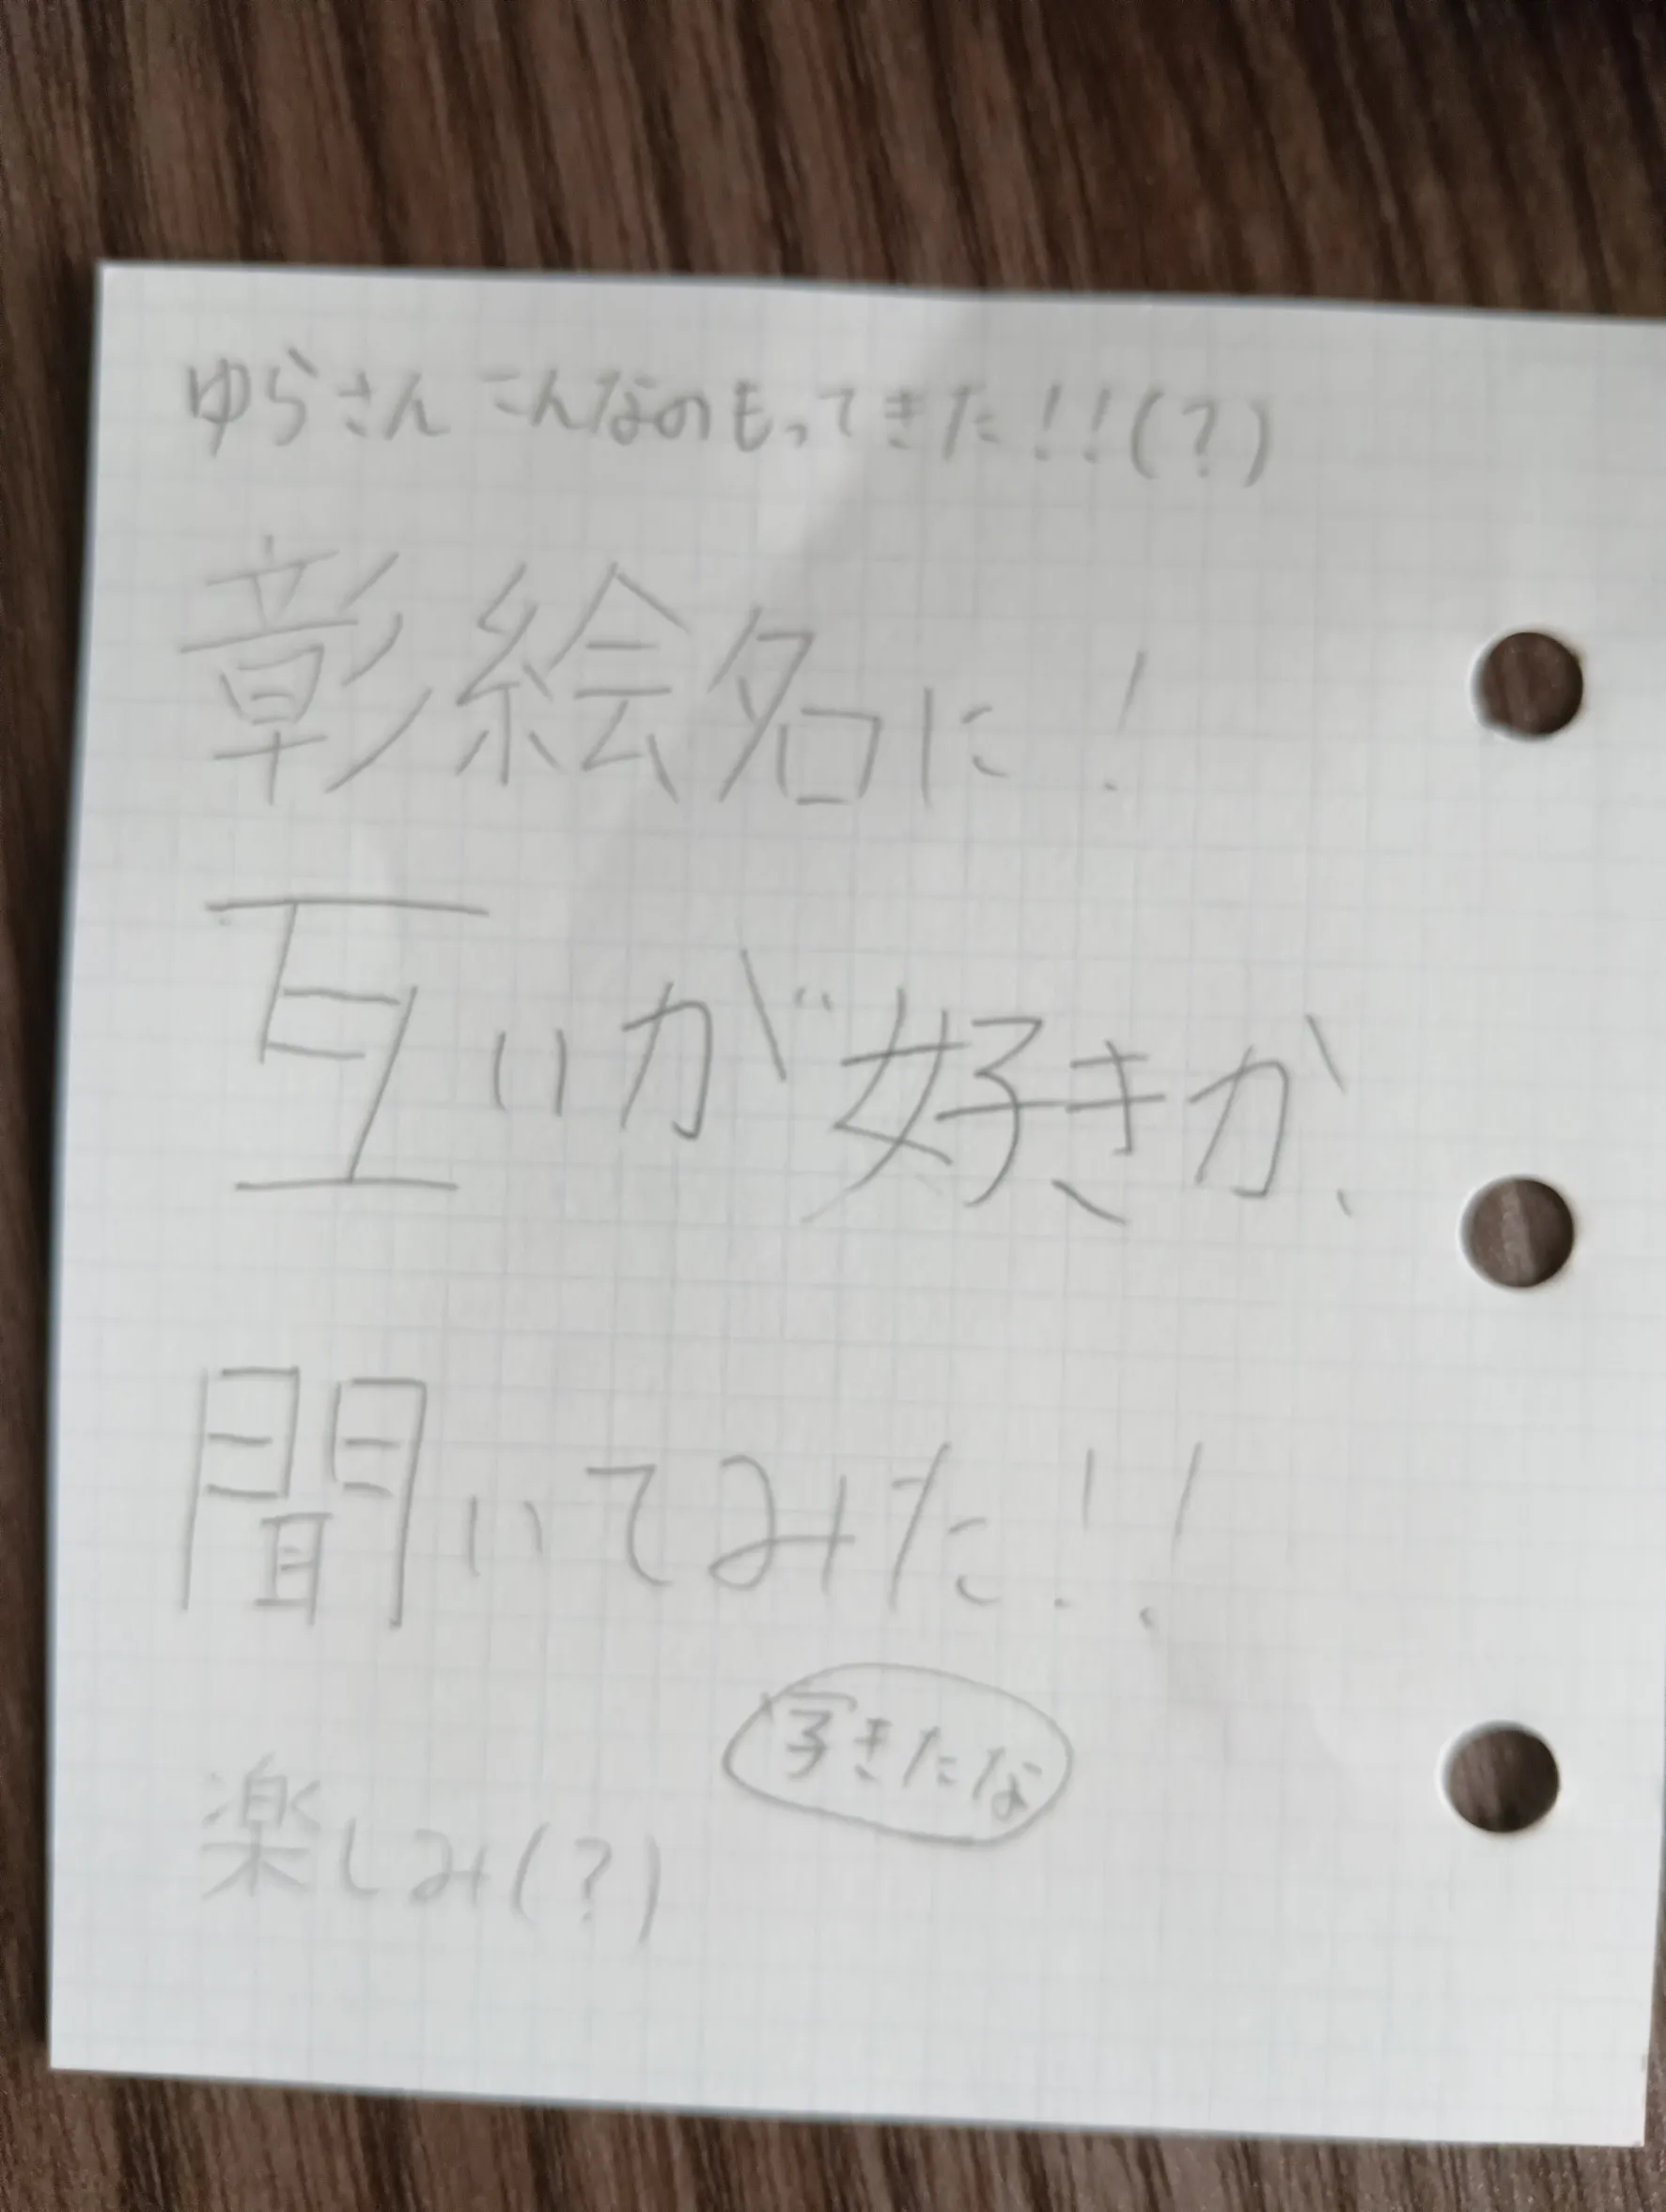 ゆらさんこんなのもってきた!!(?)
彰絵名に!
互いが好きか、
聞いてみた!!
字きたな
楽しみ(?)